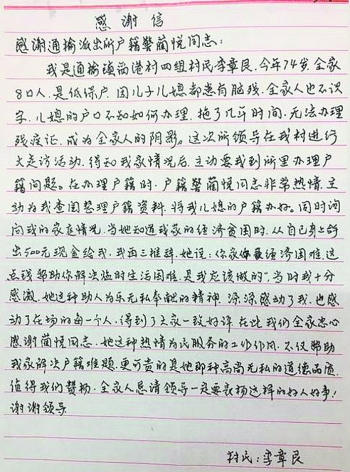 感谢信
感谢通榆派出所户籍警蔺悦同志:
我是通榆镇福港村四组村民李章良,今年74岁,全家
8口人,是低保户,因儿子儿媳都患有脑残,全家人也不识
字,儿媳的户口不知如何办理,拖了几年时间,无法办理
残疾证,成为全家人的阴影。这次所领导在我村进行
大走访活动,得知我家情况后,主动要我到所里办理户
籍问题。在办理户籍时,户籍警蔺悦同志非常热情主
动为我查阅整理户籍资料,将我儿媳的户籍办好。同时询
问我的家庭情况,当她知道我家的经济贫困时,从自己身上拿
出500元现金给我,我再三推辞,她说:你家经济困难,这
点钱帮助你解决临时生活困难,是我应该做的",当时我十分
感激,她这种助人为乐无私奉献的精神,深深感动了我,也感
动了在场的每一个人,得到了大家一致好评,在此我们全家忠心
感谢蔺悦同志,她这种热情为民服务的工作作风,不仅帮助
我家解决户籍难题,更可贵的是她那种高尚无私的道德品质,
值得我们赞扬,全家人恳请领导一定要表扬这样的好人好事!
谢谢领导
村民:李章良